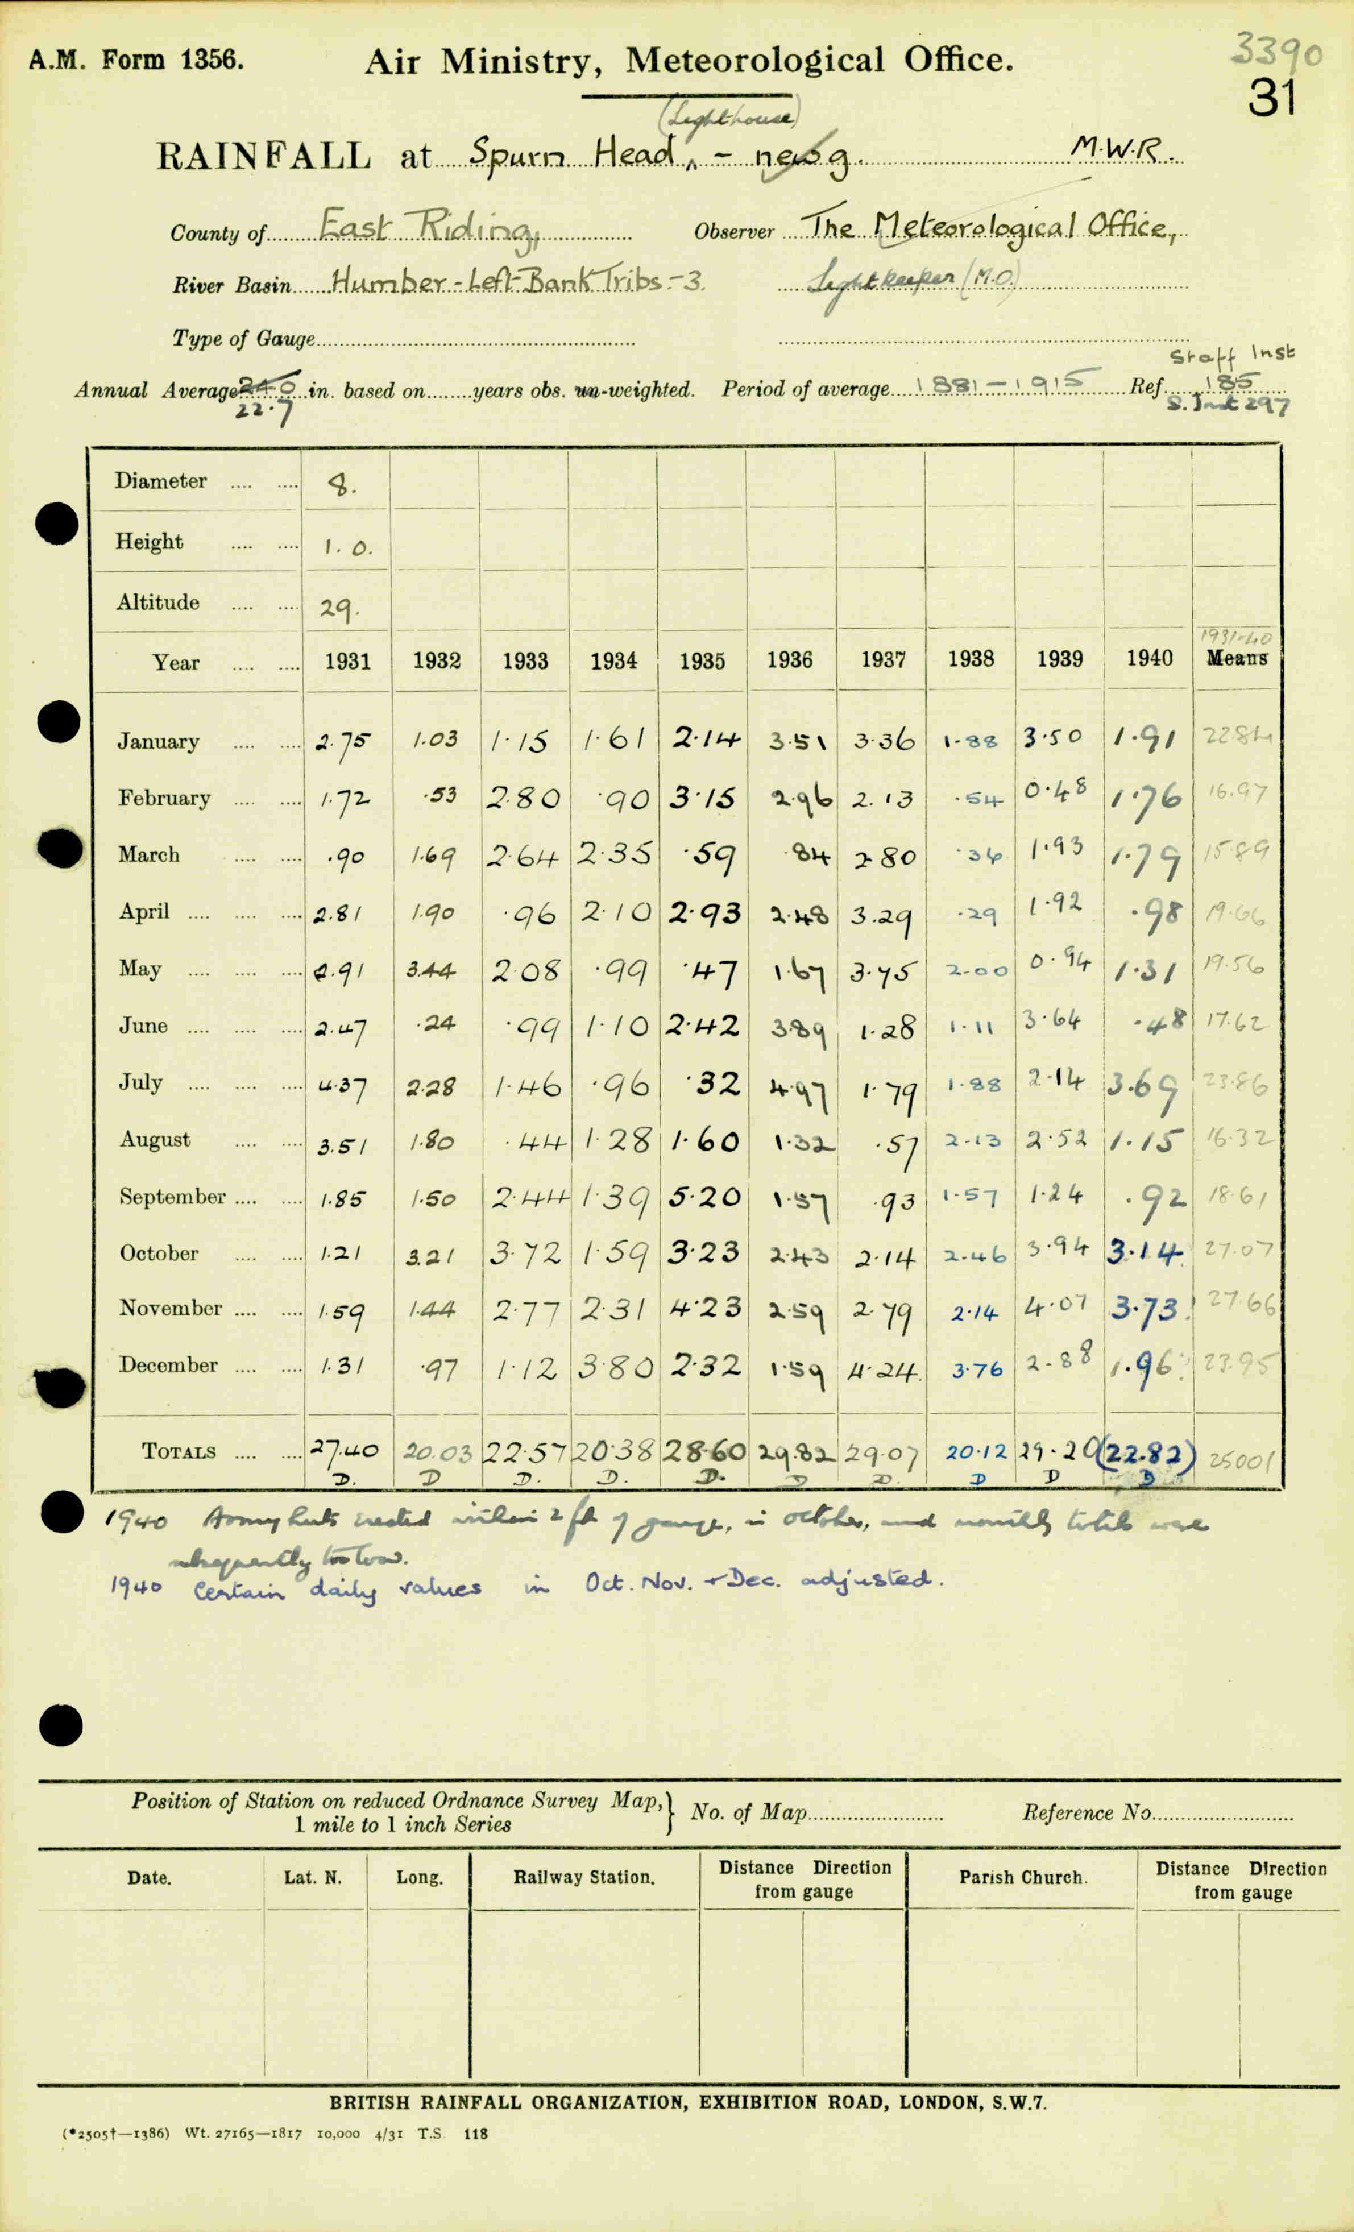 3390
A.M. Form 1356. Air Ministry, Meteorological Office. 31
(Lighthouse)
RAINFALL at Spurn Head, - new g. M.W.R.
County of East Riding, Observer The Meteorological Office,
River Basin Humber-Left-Bank Tribs.-3. Lightkeeper (M.O.)
Type of Gauge
Staff Inst
Annual Average 24.0 in. based on years obs. un-weighted. Period of average 1881-1915 Ref. 185
22.7 S. Inst 297
Diameter 8.
Height 1.0.
Altitude 29.
1931-40
Year 1931 1932 1933 1934 1935 1936 1937 1938 1939 1940 Means
January 2.75 1.03 1.15 1.61 2.14 3.51 3.36 1.88 3.50 1.91 22.84
February 1.72 .53 2.80 .90 3.15 2.96 2.13 .54 0.48 1.76 16.97
March .90 1.69 2.64 2.35 .59 .84 2.80 .36 1.93 1.79 15.89
April 2.81 1.90 .96 2.10 2.93 2.48 3.29 .29 1.92 .98 19.66
May 2.91 3.44 2.08 .99 .47 1.67 3.75 2.00 0.94 1.31 19.56
June 2.47 .24 .99 1.10 2.42 3.89 1.28 1.11 3.64 .48 17.62
July 4.37 2.28 1.46 .96 .32 4.97 1.79 1.88 2.14 3.69 23.86
August 3.51 1.80 .44 1.28 1.60 1.32 .57 2.13 2.52 1.15 16.32
September 1.85 1.50 2.44 1.39 5.20 1.57 .93 1.57 1.24 .92 18.61
October 1.21 3.21 3.72 1.59 3.23 2.43 2.14 2.46 3.94 3.14 27.07
November 1.59 1.44 2.77 2.31 4.23 2.59 2.79 2.14 4.07 3.73 27.66
December 1.31 .97 1.12 3.80 2.32 1.59 4.24 3.76 2.88 1.96 23.95
TOTALS 27.40 20.03 22.57 20.38 28.60 29.82 29.07 20.12 29.20 (22.82) 25001
D. D D. D. D. D D. D D D
1940 Army huts erected within 2 ft of gauge, in october, and monthly totals were
subsequently too low.
1940 Certain daily values in Oct. Nov. + Dec. adjusted.
Position of Station on reduced Ordnance Survey Map, } No. of Map Reference No.
1 mile to 1 inch Series
Date. Lat. N. Long. Railway Station. Distance Direction from gauge Parish Church. Distance Direction from gauge
BRITISH RAINFALL ORGANIZATION, EXHIBITION ROAD, LONDON, S.W.7.
(*2505†—1386) Wt. 27165—1817 10,000 4/31 T.S. 118